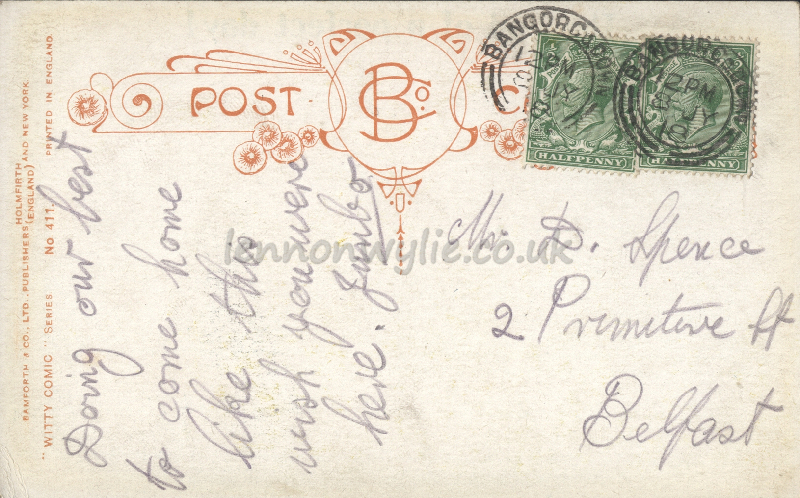 BAMFORTH & CO., LTD. PUBLISHERS HOLMFIRTH (ENGLAND) AND NEW YORK.
"WITTY COMIC" SERIES No 411. PRINTED IN ENGLAND.
POST
B Co
BANGOR CO. DOWN
12 PM
BANGOR CO. DOWN
12 PM
HALFPENNY
HALFPENNY
Doing our best
to come home
like this
wish you were
here. Jumbo
lennonwylie.co.uk
Mr. D. Spence
2 Primitive St
Belfast